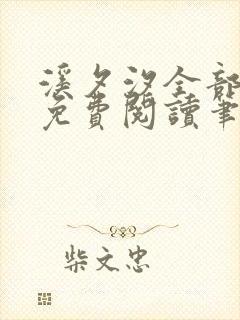 溪夕汐全部
免費閱讀筆
柴文忠